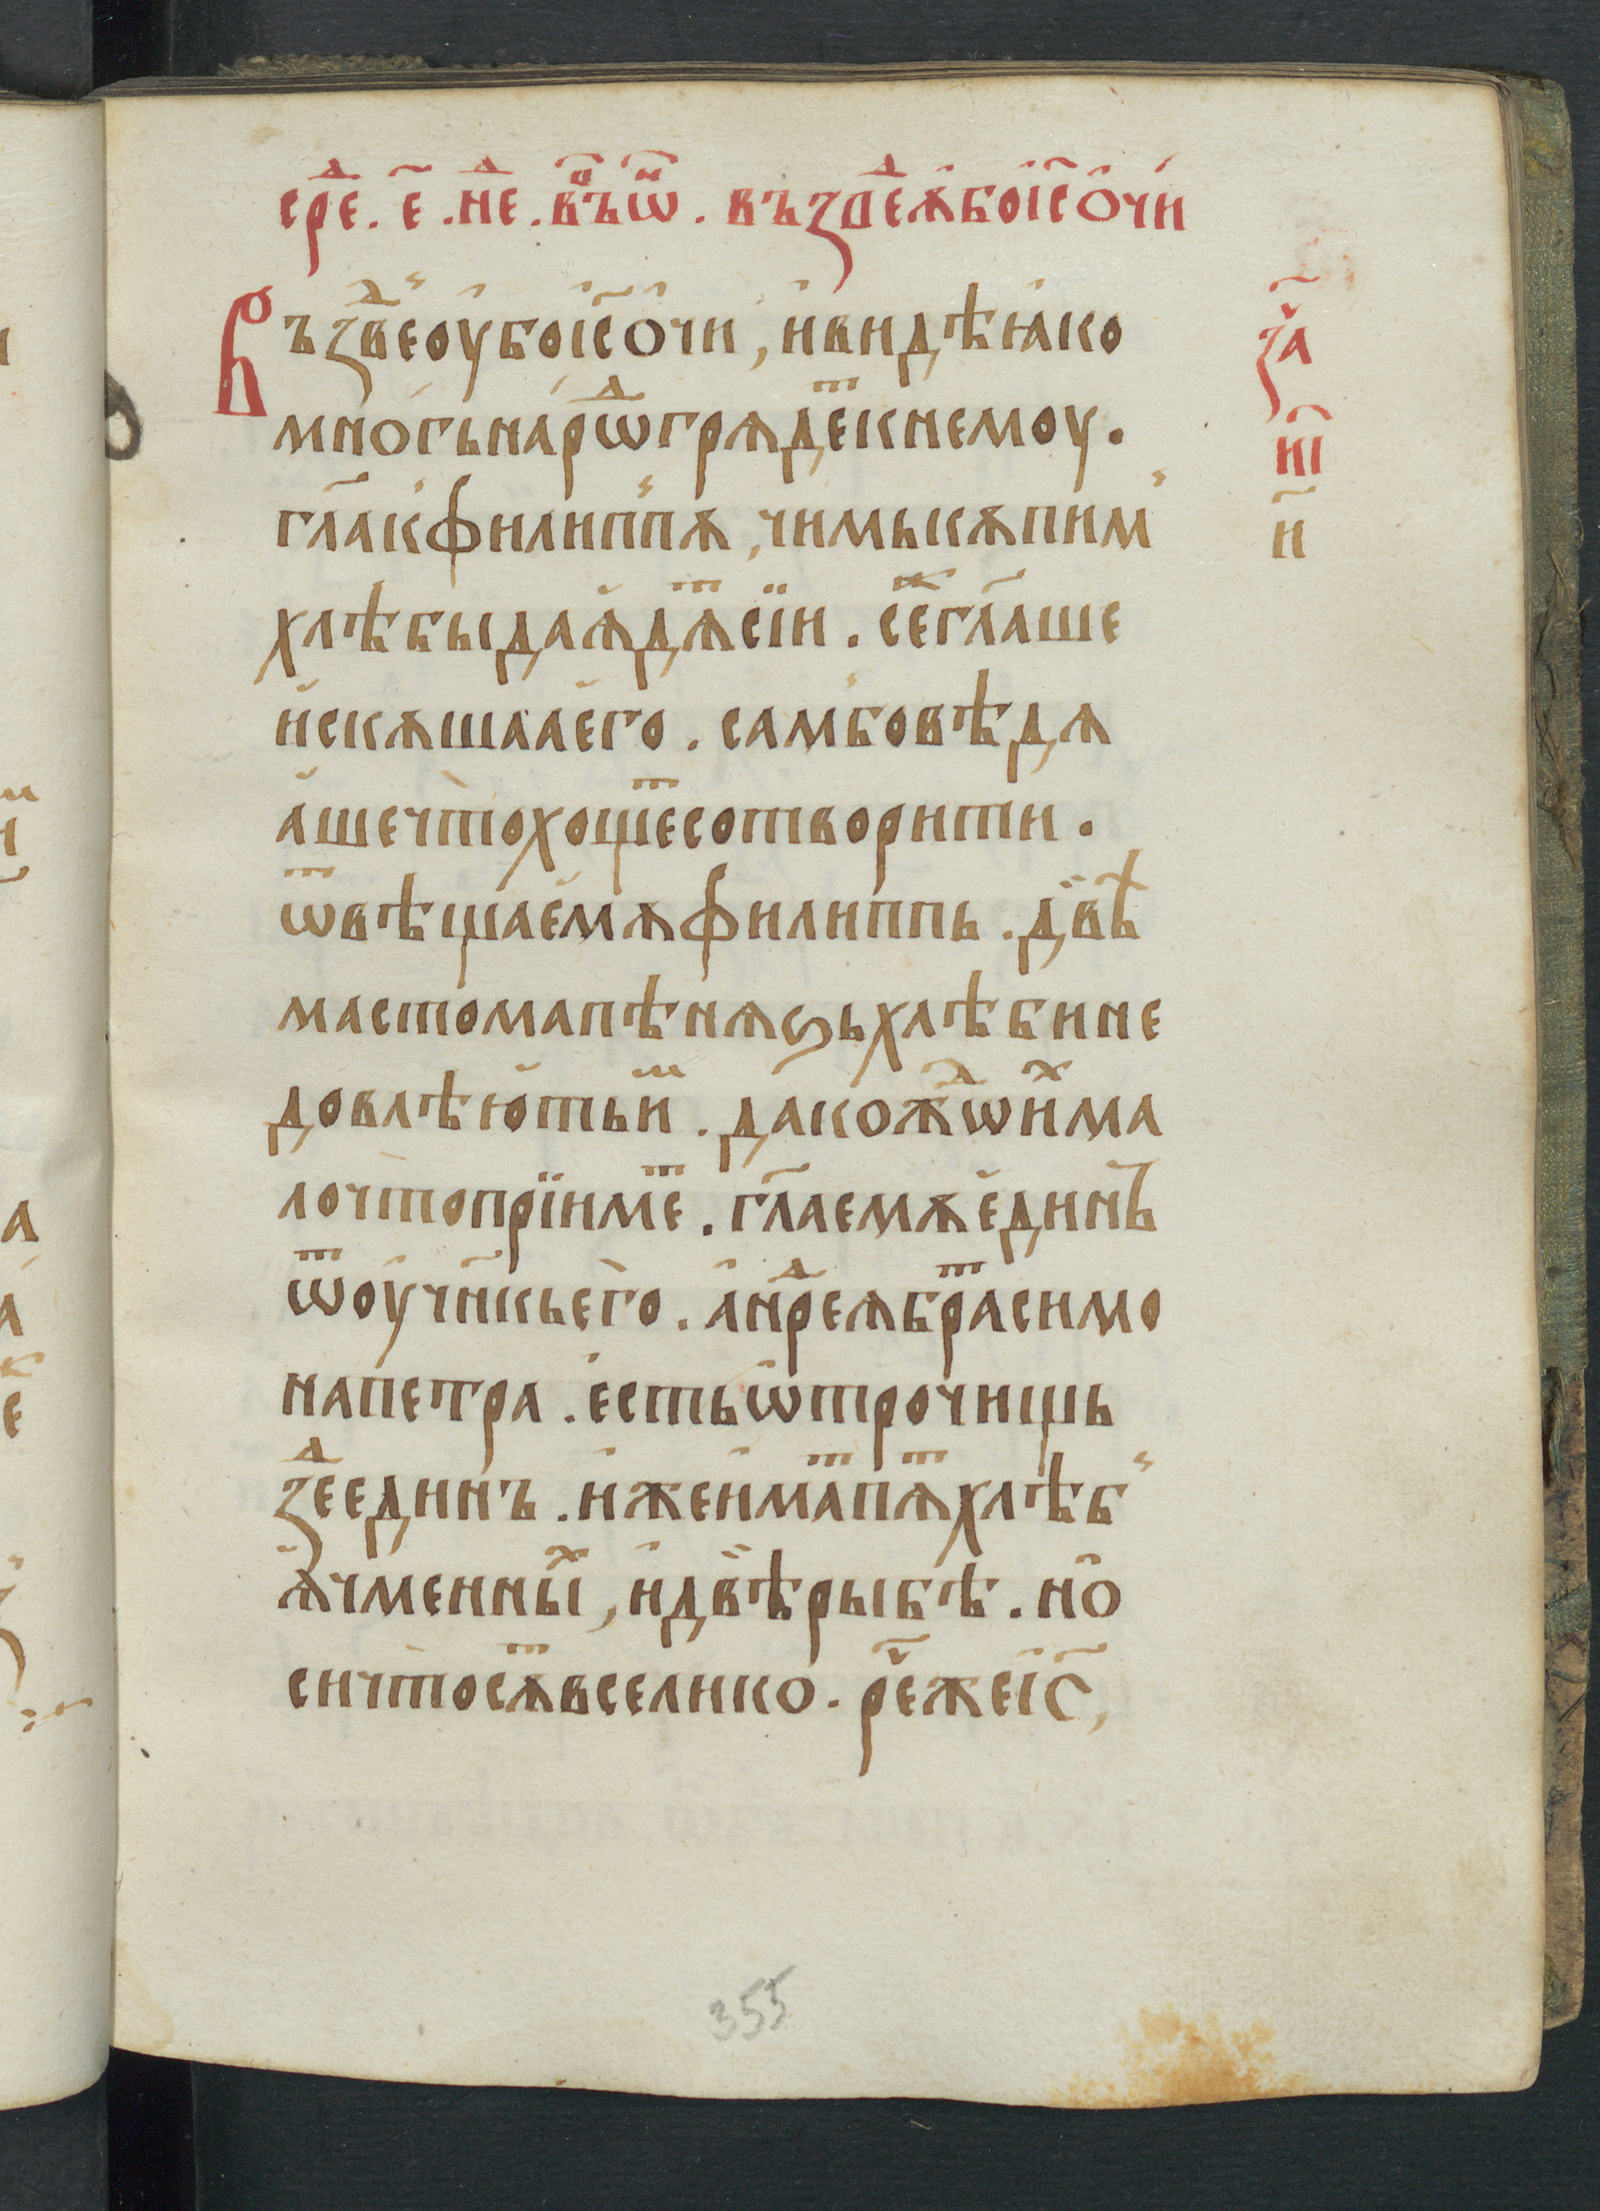 срⷣе. е҃ .нⷣе. в҃ъѡ҃. въздⷣеѫбоіс҃очи
Въздв҃еоубоіс҃очи, ивидѣꙗко
многьнарѡⷣгрѧдеⷮкнемоу.
гл҃акфилиппѫ, чимькѫпим
хлѣбыдаѧдѧⷮсїи. сеⷤгл҃аше
искѫшааего. самбовѣдѧ
ашечтохощеⷮсотворити.
ѿвѣщаемѫфилиппь. двѣⷯ
мастомапѣнѧѕьхлѣбине
довлѣютьиⷨ. дакожⷣѡиⷯма
лочтопрїимеⷮ. гл҃аемѫединь
ѿоучн҃кьего. анрⷣеѫбраⷮсимо
напетра. естьѡтрочищь
зⷣеединъ. ижеимаⷮпѧⷮхлѣб
ѧчменныⷯ, идвѣрыбѣ. но
сичтосѫⷮвселико. рч҃ежеіс҃,
за҃ч
иі҃
и҃
355